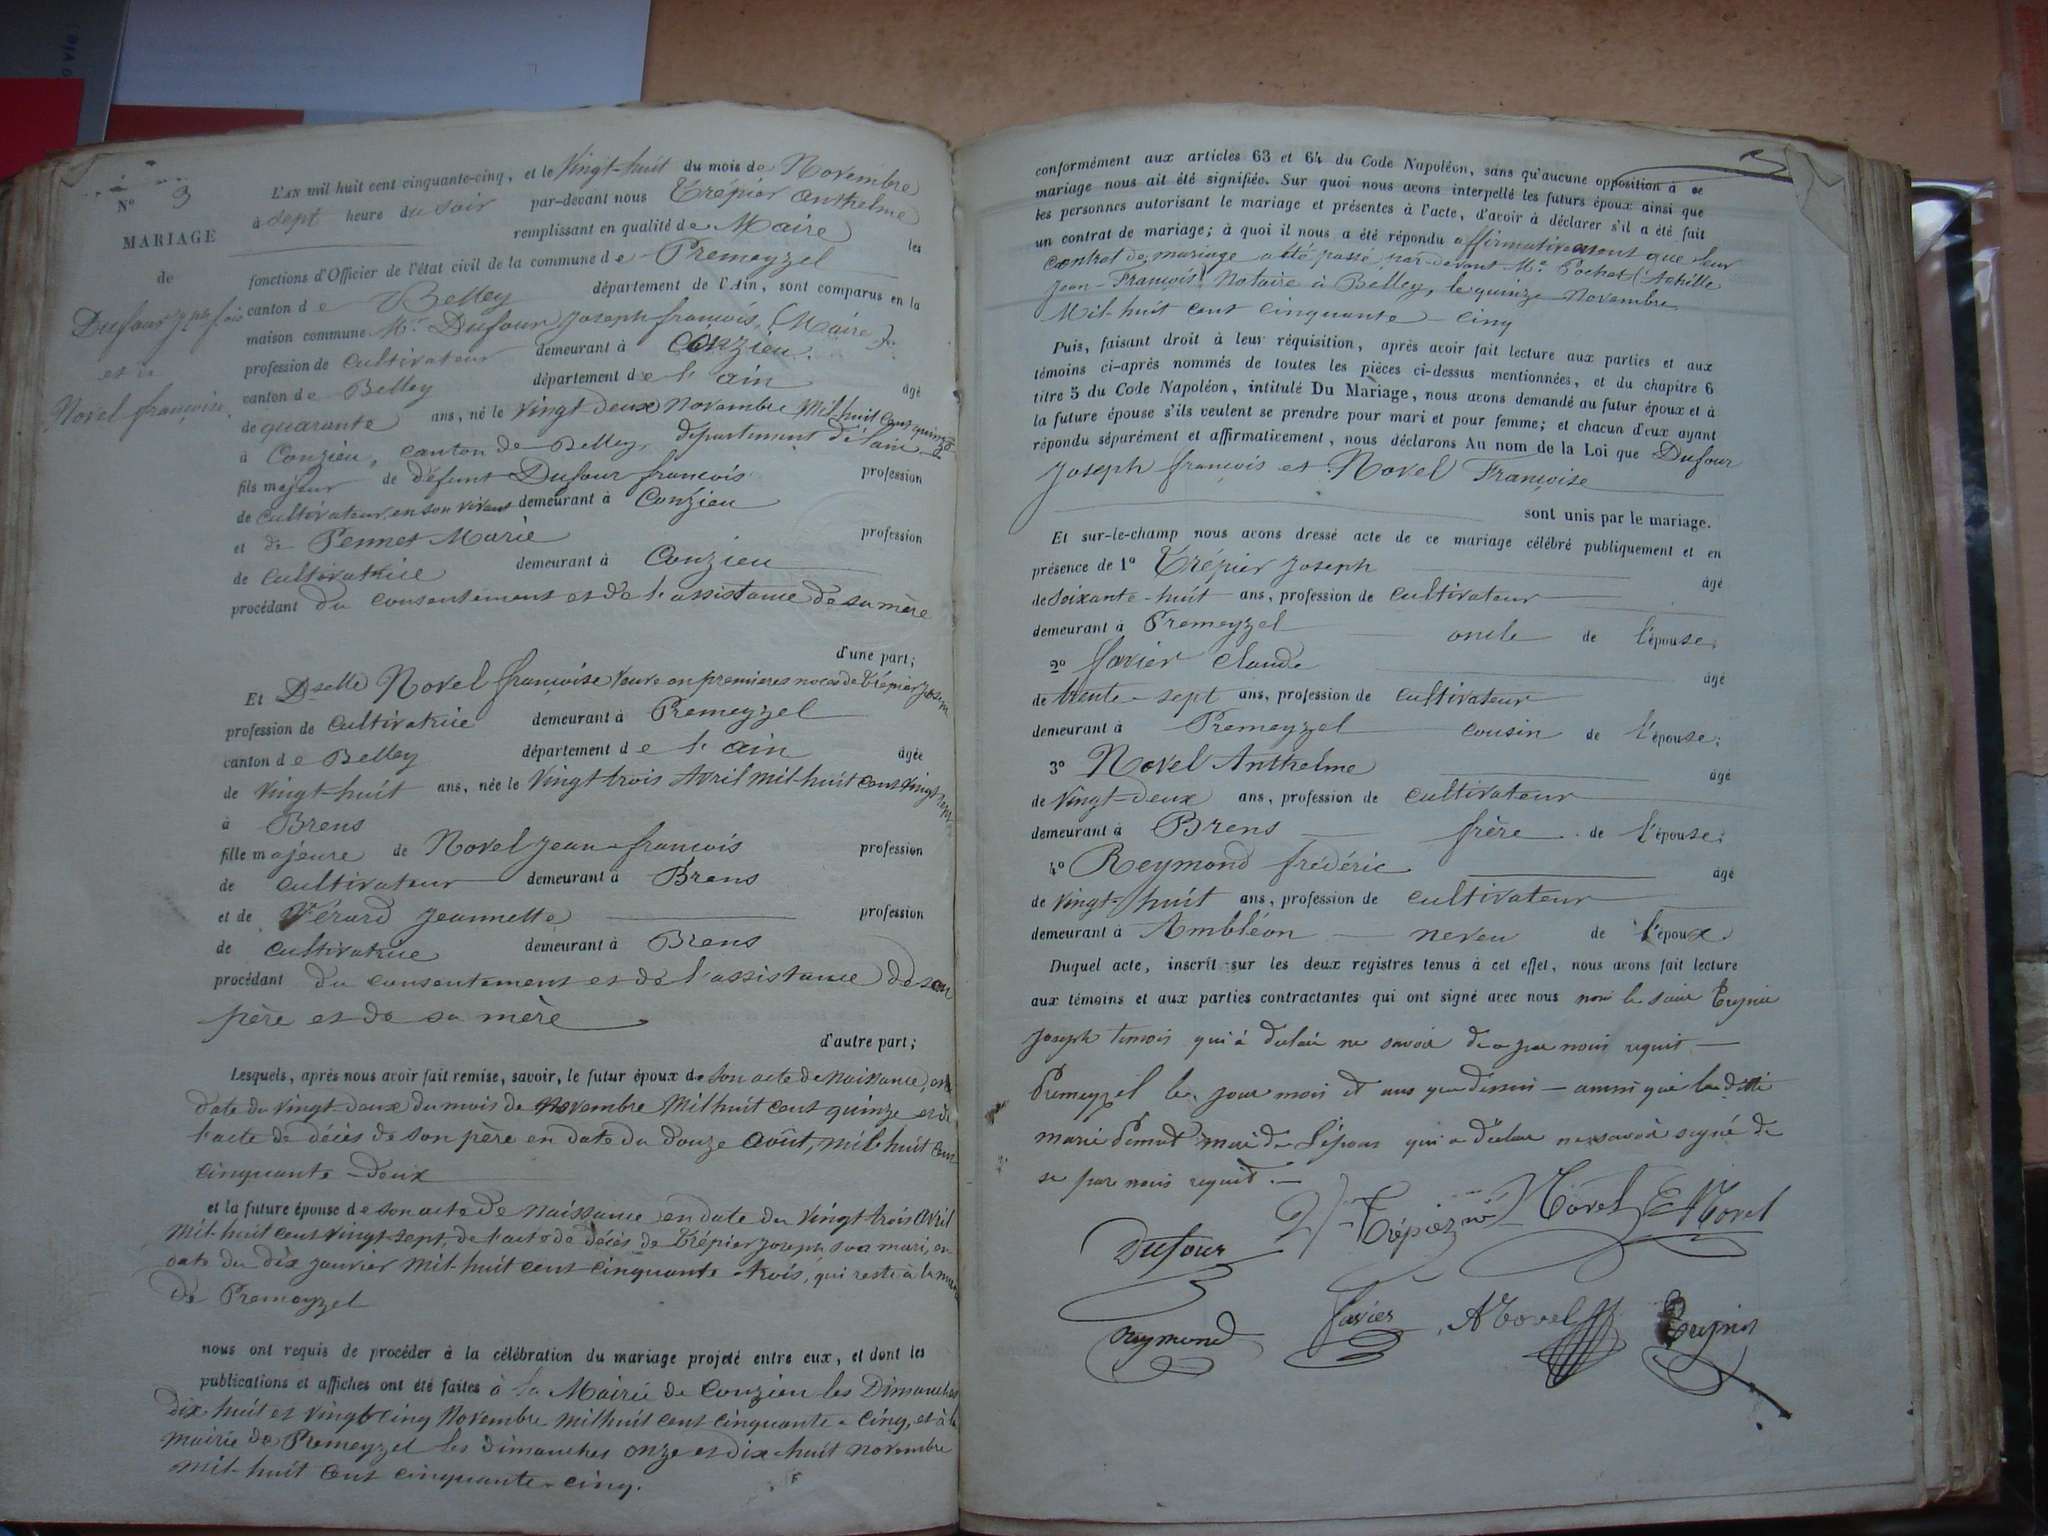 N° 3
MARIAGE
de
Dufour Jph fois
et de
Novel françoise
L'AN mil huit cent cinquante-cinq, et le Vingt-huit du mois de Novembre
à sept heure du soir par-devant nous Trépier Anthelme
remplissant en qualité de Maire les
fonctions d'Officier de l'état civil de la commune de Premeyzel
canton de Belley département de l'Ain, sont comparus en la
maison commune Mr. Dufour Joseph françois, (Maire)
profession de cultivateur demeurant à Conzieu.
canton de Belley département de l'ain âgé
de quarante ans, né le Vingt deux Novembre Mil huit cent quinze
à Conzieu, canton de Belley, département de l'ain
fils majeur de défunt Dufour françois profession
de cultivateur, en son vivant demeurant à Conzieu
et de Pennet Marie profession
de cultivatrice demeurant à Conzieu
procédant du consentement et de l'assistance de sa mère
d'une part;
Et Dselle Novel françoise Veuve en premières noces de Trépier Joseph
profession de cultivatrice demeurant à Premeyzel
canton de Belley département de l'ain âgée
de Vingt-huit ans, née le Vingt trois Avril mil huit cent vingt sept
à Brens
fille majeure de Novel Jean-francois profession
de cultivateur demeurant à Brens
et de Vérard Jeannette profession
de cultivatrice demeurant à Brens
procédant du consentement et de l'assistance de son
père et de sa mère
d'autre part;
Lesquels, après nous avoir fait remise, savoir, le futur époux de son acte de Naissance, en
date du vingt deux du mois de Novembre Mil huit cent quinze et de
l'acte de décès de son père en date du douze août, mil-huit cent
cinquante-deux
et la future épouse de son acte de Naissance en date du Vingt trois Avril
Mil-huit cent vingt-sept, de l'acte de décès de Trépier Joseph son mari, en
date du dix Janvier Mil-huit cent cinquante trois, qui reste à la mairie
de Premeyzel
nous ont requis de procéder à la célébration du mariage projeté entre eux, et dont les
publications et affiches ont été faites à la Mairie de Conzieu les Dimanches
dix huit et vingt cinq Novembre mil huit cent cinquante-cinq, et à la
mairie de Premeyzel les dimanches onze et dix-huit novembre
mil-huit cent cinquante-cinq.
conformément aux articles 63 et 64 du Code Napoléon, sans qu'aucune opposition à ce
mariage nous ait été signifiée. Sur quoi nous avons interpellé les futurs époux ainsi que
les personnes autorisant le mariage et présentes à l'acte, d'avoir à déclarer s'il a été fait
un contrat de mariage; à quoi il nous a été répondu affirmativement que leur
contrat de mariage a été passé par-devant Me. Pochet (Achille
Jean-François) Notaire à Belley, le quinze Novembre
Mil-huit cent cinquante-cinq
Puis, faisant droit à leur réquisition, après avoir fait lecture aux parties et aux
témoins ci-après nommés de toutes les pièces ci-dessus mentionnées, et du chapitre 6
titre 5 du Code Napoléon, intitulé Du Mariage, nous avons demandé au futur époux et à
la future épouse s'ils veulent se prendre pour mari et pour femme; et chacun d'eux ayant
répondu séparément et affirmativement, nous déclarons Au nom de la Loi que Dufour
Joseph françois et Novel Françoise
sont unis par le mariage.
Et sur-le-champ nous avons dressé acte de ce mariage célébré publiquement et en
présence de 1° Trépier Joseph âgé
de soixante-huit ans, profession de cultivateur
demeurant à Premeyzel oncle de l'épouse;
2° Javier Claude âgé
de trente-sept ans, profession de cultivateur
demeurant à Premeyzel cousin de l'épouse;
3° Novel Anthelme âgé
de Vingt-deux ans, profession de cultivateur
demeurant à Brens frère de l'épouse;
4° Reymond frédéric âgé
de Vingt-huit ans, profession de cultivateur
demeurant à Ambléon neveu de l'époux.
Duquel acte, inscrit sur les deux registres tenus à cet effet, nous avons fait lecture
aux témoins et aux parties contractantes qui ont signé avec nous non le sieur Trepier
Joseph temoin qui à déclaré ne savoir de ce par nous requit —
Premeyzel les jour mois et ans que dessus — ainsi que la ditte
marie Pennet mere de l'époux qui a déclaré ne savoir signé de
ce par nous requit. —
Dufour Trépier Novel Novel
Reymond Javier ANovel Trepier